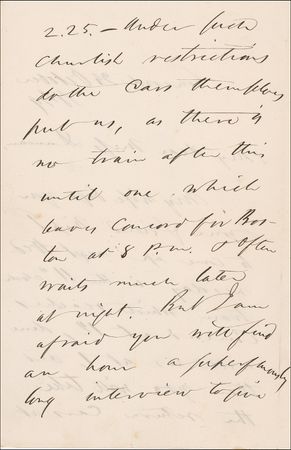 2.25. — Under such
churlish restrictions
do the Cars themselves
put us, as there is
no train after this
until one which
leaves Concord for Bos-
ton at 8 P.m. & often
waits much later
at night. But I am
afraid you will find
an hour a superfluously
long interview to give
the